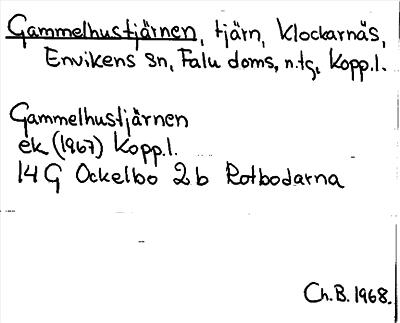 Gammelhustjärnen, tjärn, Klockarnäs,
Envikens sn, Falu doms, n.tg, Kopp.l.
Gammelhustjärnen
ek (1967) Kopp.l.
14 G Ockelbo 2b Rotbodarna
Ch.B. 1968.